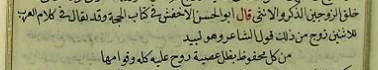 خلق الزوجين الذكر والانثى قال ابو الحسن الاخفش في كتاب الحجة وقد يقال في كلام العرب
للاثنين زوج من ذلك قول الشاعر وهو لبيد
من كل محفوظ يظل عصيه زوج عليه كلة وقوامها